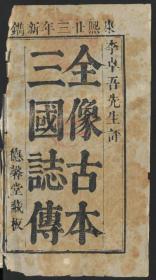 康熙廿三年新鐫
李卓吾先生評
全像古本
三國誌傳
德馨堂藏板